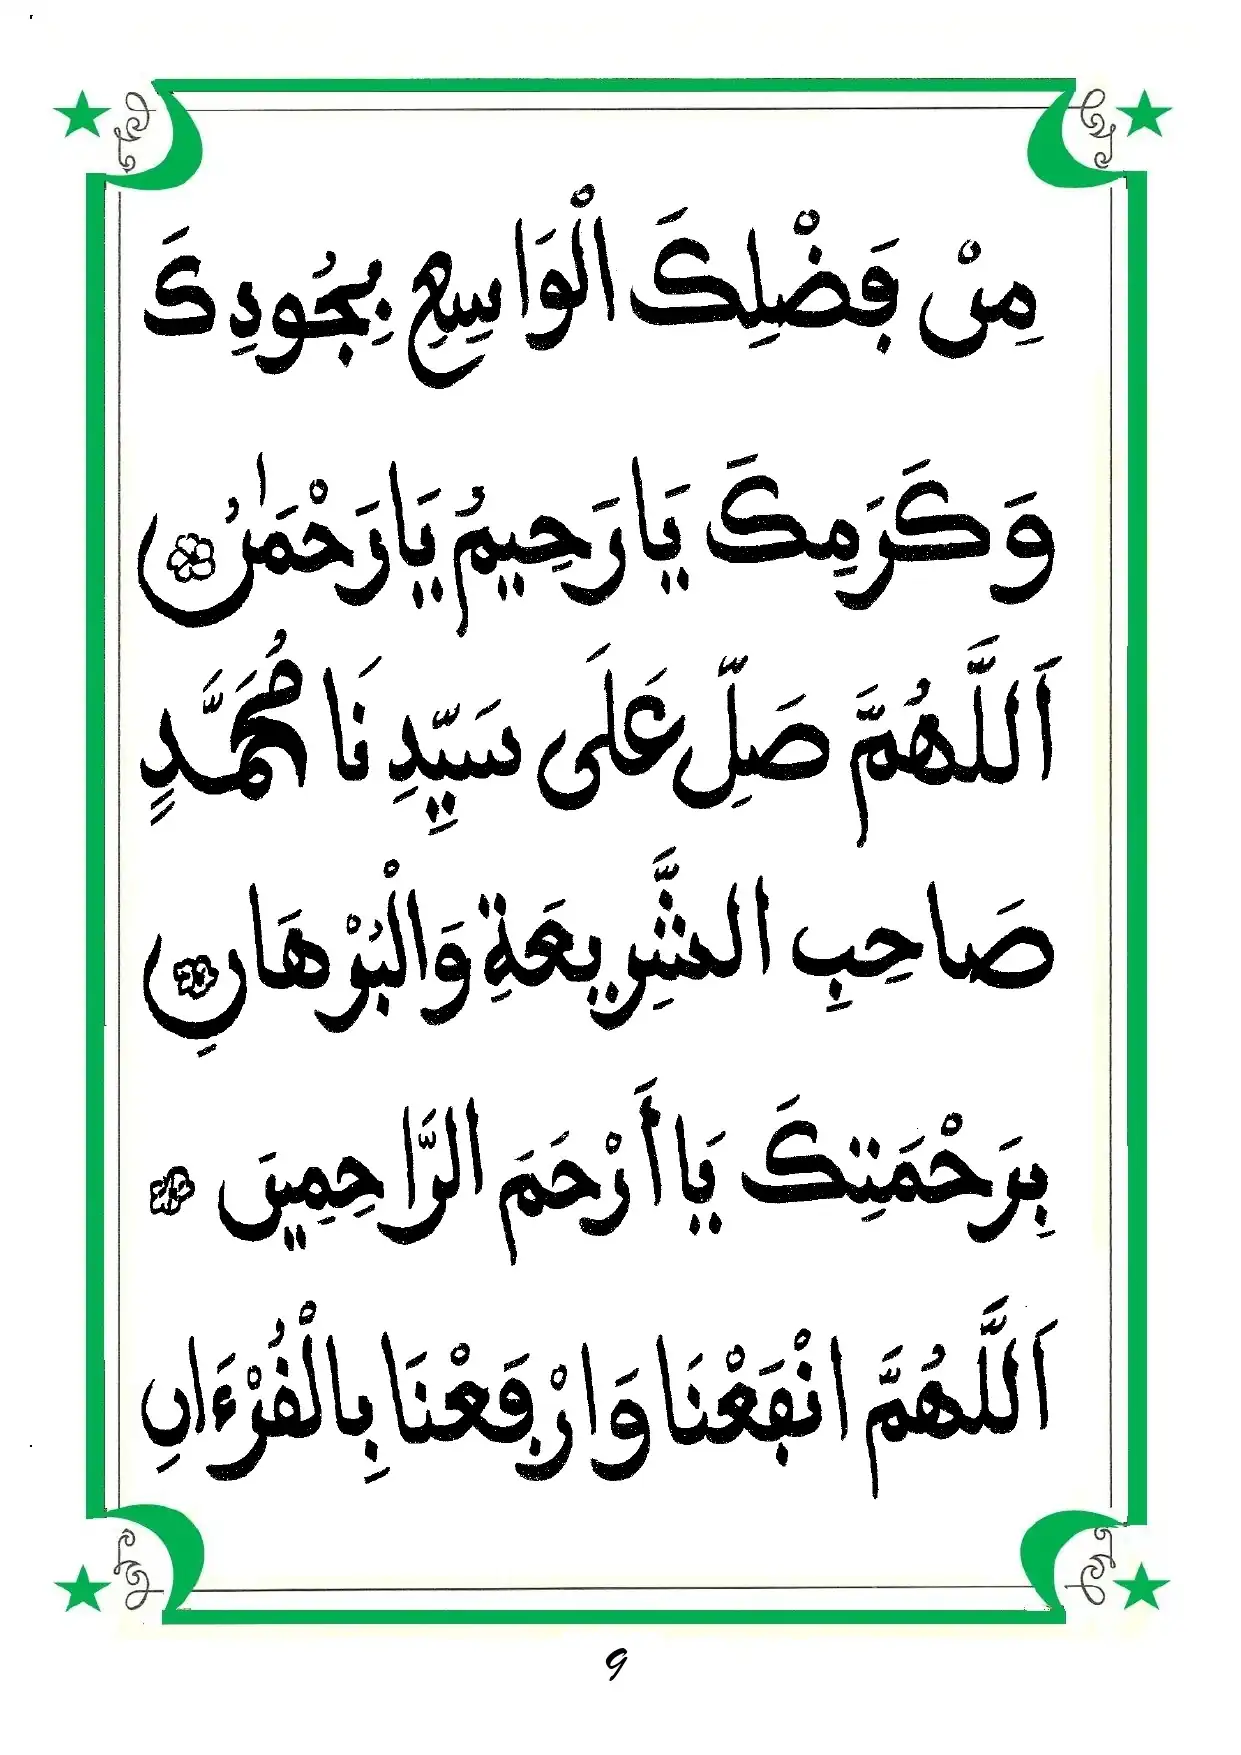 مِنْ فَضْلِكَ الْوَاسِعِ بِجُودِكَ
وَكَرَمِكَ يَا رَحِيمُ يَا رَحْمَٰنُ
اَللَّهُمَّ صَلِّ عَلَى سَيِّدِنَا مُحَمَّدٍ
صَاحِبِ الشَّرِيعَةِ وَالْبُرْهَانِ
بِرَحْمَتِكَ يَا أَرْحَمَ الرَّاحِمِينَ
اَللَّهُمَّ انْفَعْنَا وَارْفَعْنَا بِالْقُرْءَانِ
9